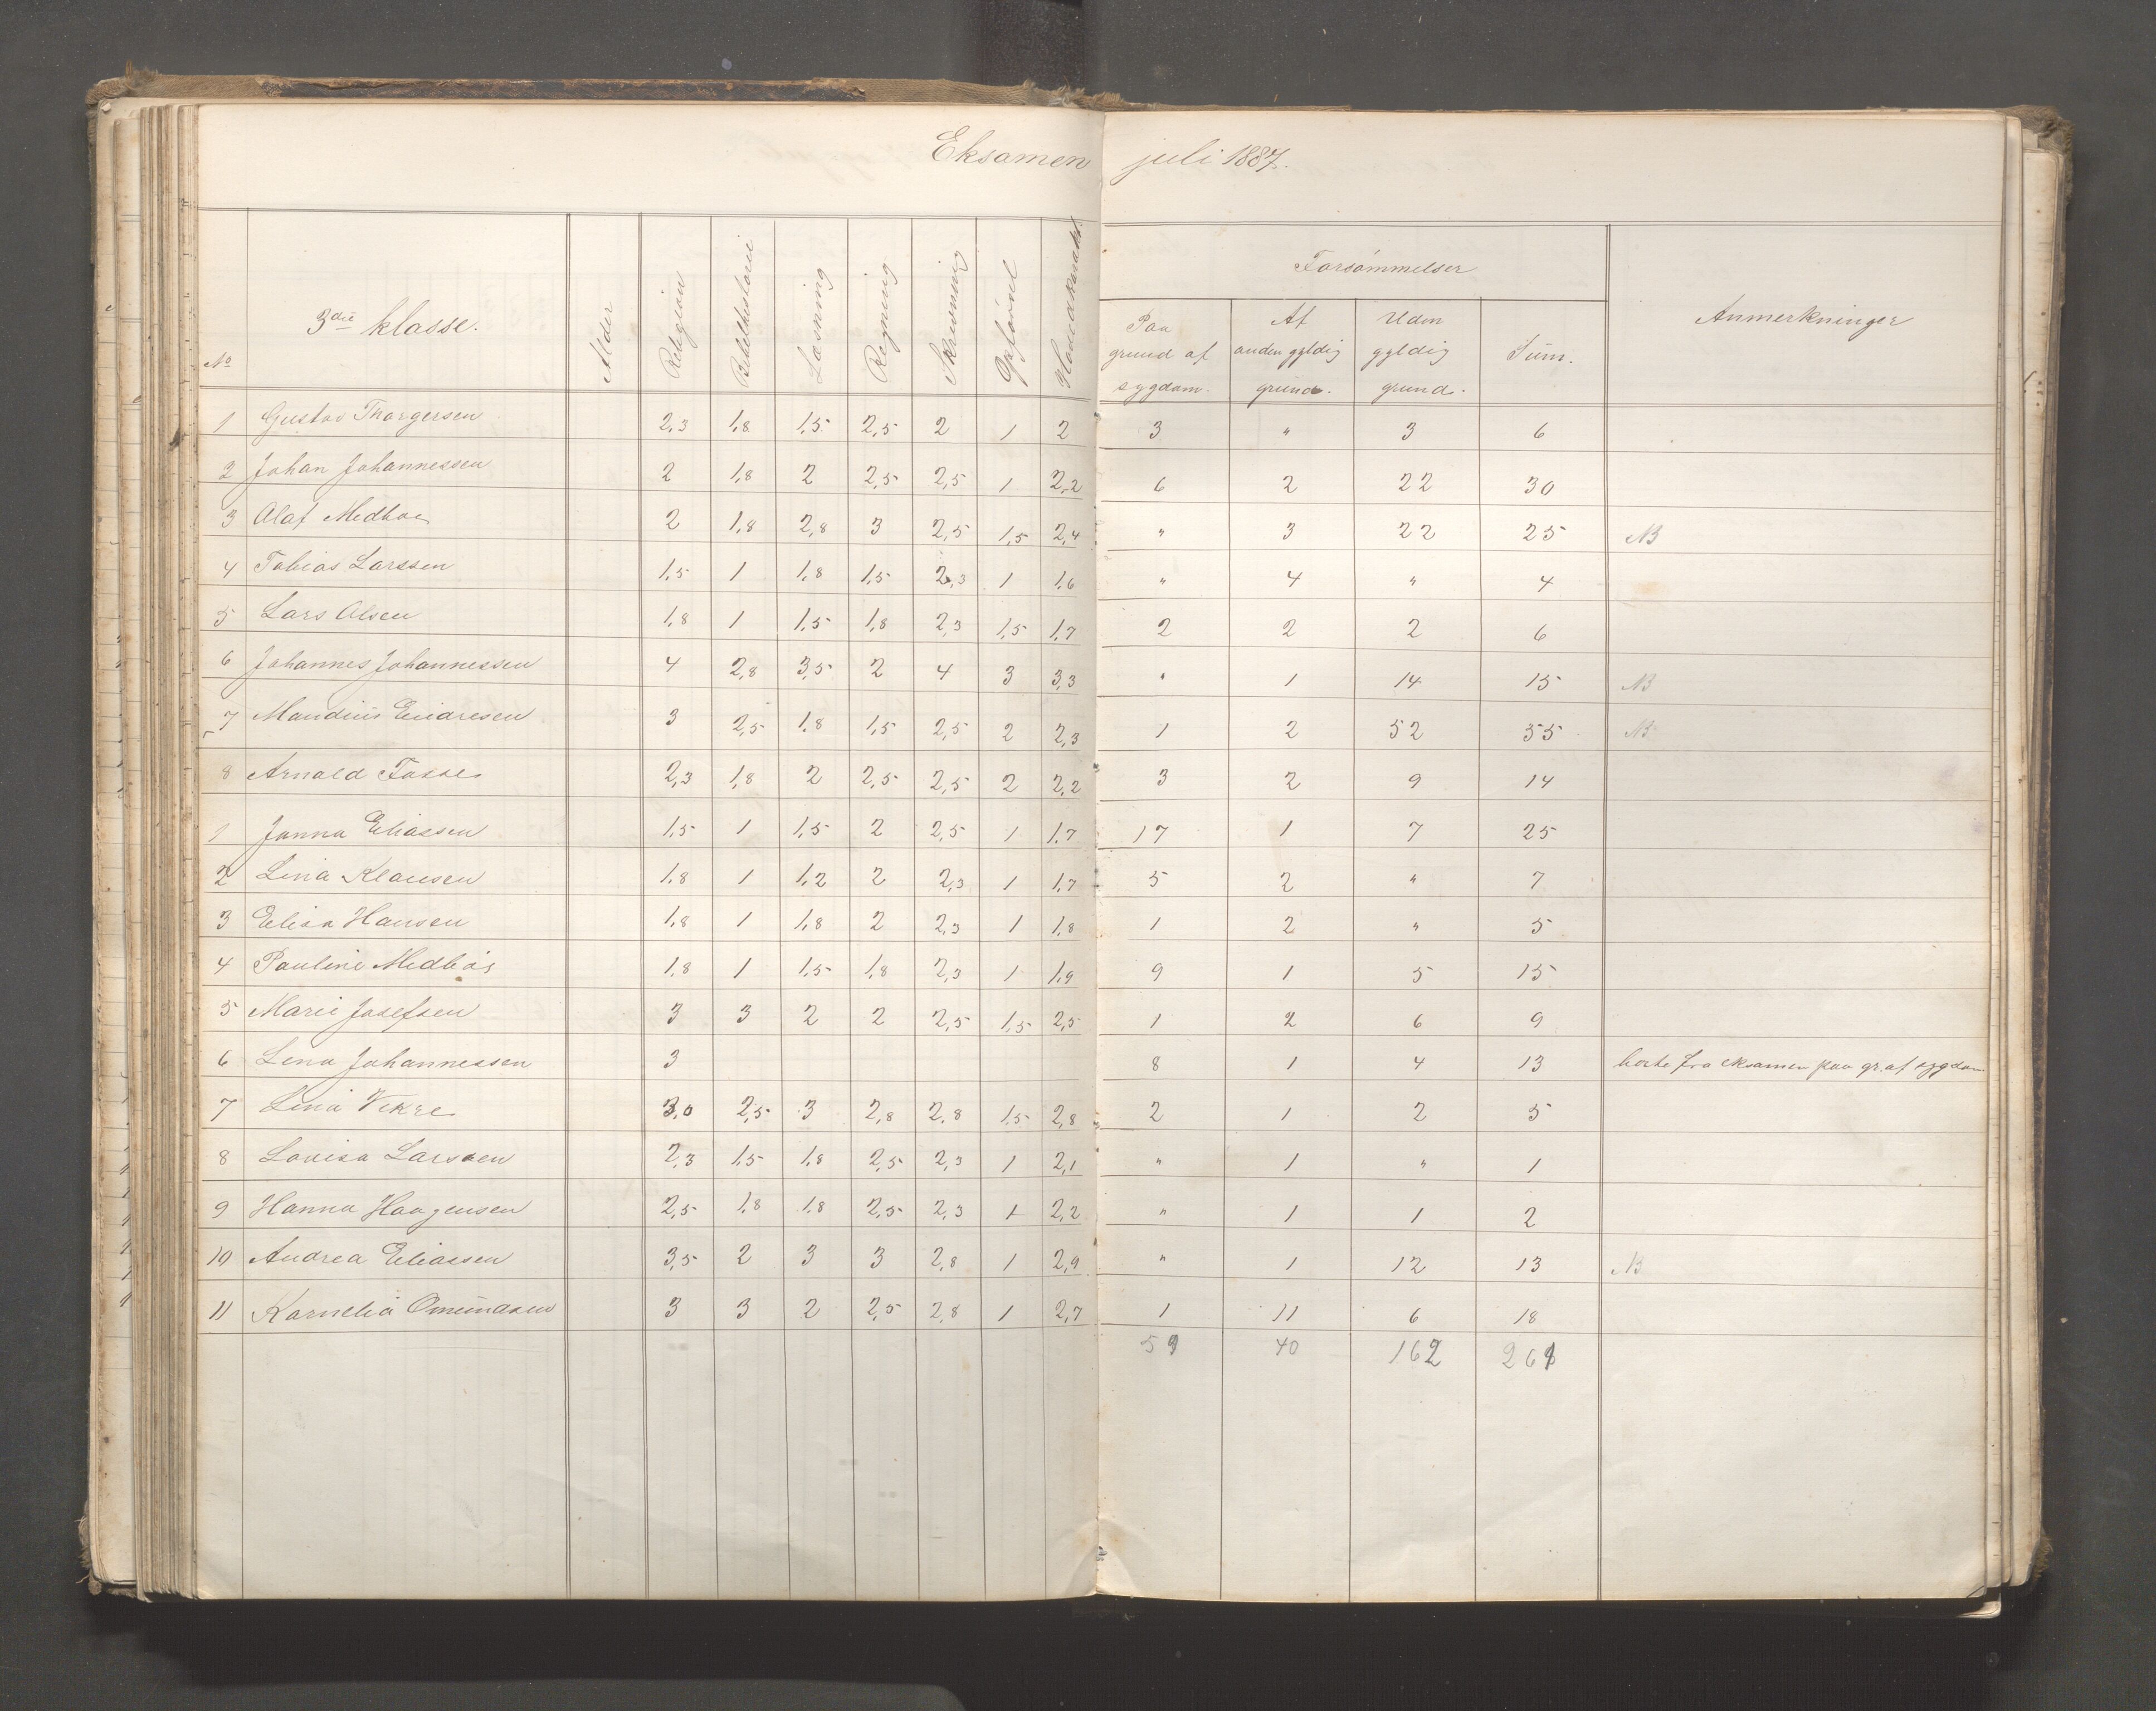 Eksamen juli 1887.
No 3die klasse. Alder Religion Bibelhistorie Læsning Regning Skrivning Opførsel Hovedkarakt.
Forsømmelser
Paa grund af sygdom. Af anden gyldig grund. Uden gyldig grund. Sum. Anmerkninger
1 Gustav Thorgersen 2,3 1,8 1,5 2,5 2 1 2 3 " 3 6
2 Johan Johannessen 2 1,8 2 2,5 2,5 1 2,2 6 2 22 30
3 Olaf 2 1,8 2,8 3 2,5 1,5 2,4 " 3 22 25 NB
4 Tobias Larssen 1,5 1 1,8 1,5 2,3 1 1,6 " 4 " 4
5 Lars Olsen 1,8 1 1,5 1,8 2,3 1,5 1,7 2 2 2 6
6 Johannes Johannessen 4 2,8 3,5 2 4 3 3,3 " 1 14 15 NB
7 Mandius Endresen 3 2,5 1,8 1,5 2,5 2 2,3 1 2 52 55 NB
8 Arnold 2,3 1,8 2 2,5 2,5 2 2,2 3 2 9 14
1 Janna Eliassen 1,5 1 1,5 2 2,5 1 1,7 17 1 7 25
2 Lina Klausen 1,8 1 1,2 2 2,3 1 1,7 5 2 " 7
3 Elisa Hansen 1,8 1 1,8 2 2,3 1 1,8 1 2 " 5
4 Pauline Medbøs 1,8 1 1,5 1,8 2,3 1 1,9 9 1 5 15
5 Marie Josefsen 3 3 2 2 2,5 1,5 2,5 1 2 6 9
6 Lena Johannessen 3 8 1 4 13 borte fra eksamen paa gr. af sygdom
7 Lina Vikre 3,0 2,5 3 2,8 2,8 1,5 2,8 2 1 2 5
8 Lovisa Larssen 2,3 1,5 1,8 2,5 2,3 1 2,1 " 1 " 1
9 Hanna Haagensen 2,5 1,8 1,8 2,5 2,3 1 2,2 " 1 1 2
10 Andrea Eliassen 3,5 2 3 3 2,8 1 2,9 " 1 12 13 NB
11 Karnelia Omundsen 3 3 2 2,5 2,8 1 2,7 1 11 6 18
59 40 162 261